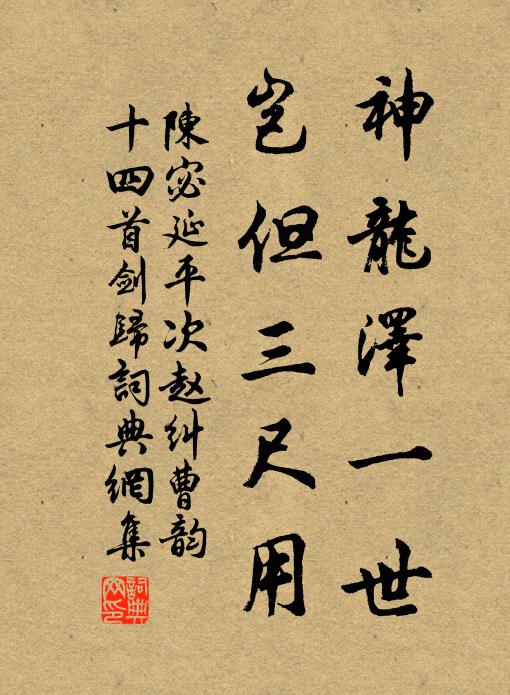 神龍澤一世
豈但三尺用
陳宓延平次赵糾曹韵
十四首劍歸詞典網集
詞典网印